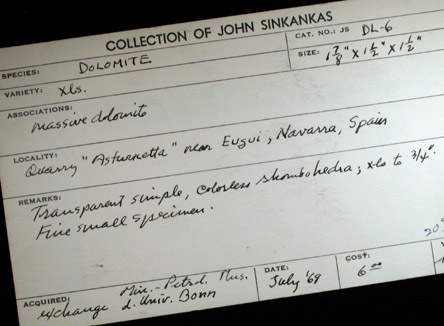 COLLECTION OF JOHN SINKANKAS
SPECIES: DOLOMITE
CAT. NO.: JS DL-6
VARIETY: xls.
SIZE: 1 7/8" x 1 1/2" x 1 1/2"
ASSOCIATIONS:
massive dolomite
LOCALITY:
Quarry "Asturretta" near Eugui, Navarra, Spain
REMARKS:
Transparent simple, colorless rhombohedra; xls to 3/4".
Fine small specimen.
20
ACQUIRED: Min.-Petrol. Mus.
exchange d. Univ. Bonn
DATE:
July '69
COST:
6 00